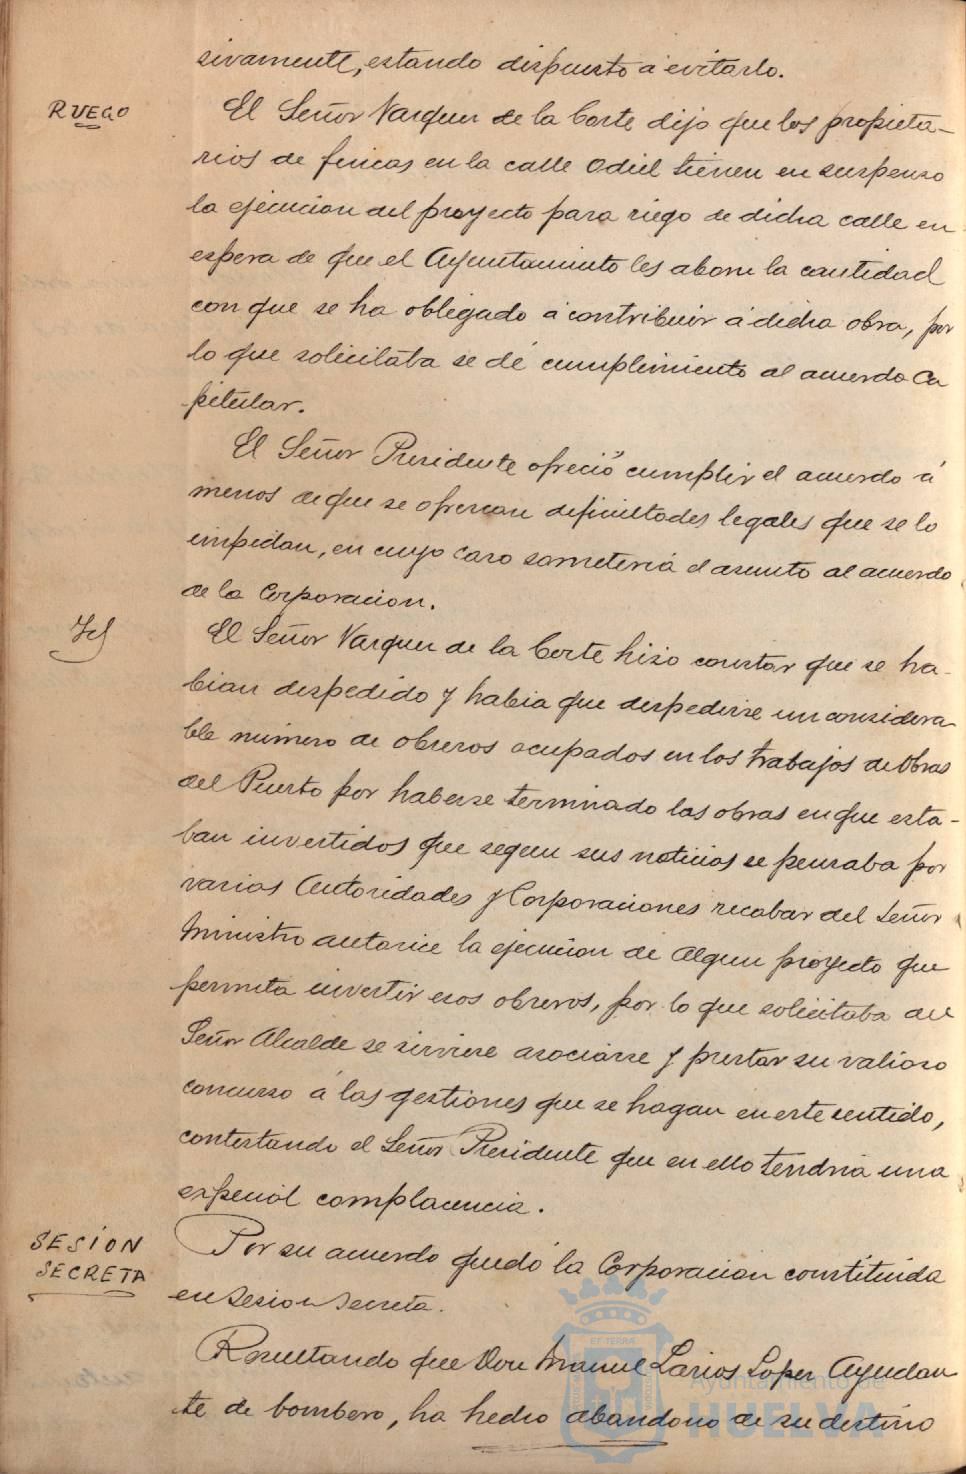 sivamente, estando dispuesto á evitarlo.
RUEGO
El Señor Vazquez de la Corte dijo que los propieta-
rios de fincas en la calle Odiel tienen en suspenso
la ejecucion del proyecto para riego de dicha calle en
espera de que el Ayuntamiento les abone la cantidad
con que se ha obligado á contribuir á dicha obra, por
lo que solicitaba se dé cumplimiento al acuerdo Ca
pitular.
El Señor Presidente ofreció cumplir el acuerdo á
menos de que se ofrezcan dificultades legales que se lo
impidan, en cuyo caso someteria el asunto al acuerdo
de la Corporacion.
Id
El Señor Vazquez de la Corte hizo constar que se ha-
bian despedido y habia que despedirse un considera
ble número de obreros ocupados en los trabajos de Obras
del Puerto por haberse terminado las obras en que esta-
ban invertidos que segun sus noticias se pensaba por
varias Autoridades y Corporaciones recabar del Señor
Ministro autorice la ejecucion de algun proyecto que
permita invertir esos obreros, por lo que solicitaba del
Señor Alcalde se sirviese asociarse y prestar su valioso
concurso á las gestiones que se hagan en este sentido,
contestando el Señor Presidente que en ello tendria una
especial complacencia.
SESION
SECRETA
Por su acuerdo quedó la Corporacion constituida
en Sesion Secreta.
Resultando que Don Manuel Larios Lopez Ayudan
te de bombero, ha hecho abandono de su destino
Ayuntamiento de
HUELVA